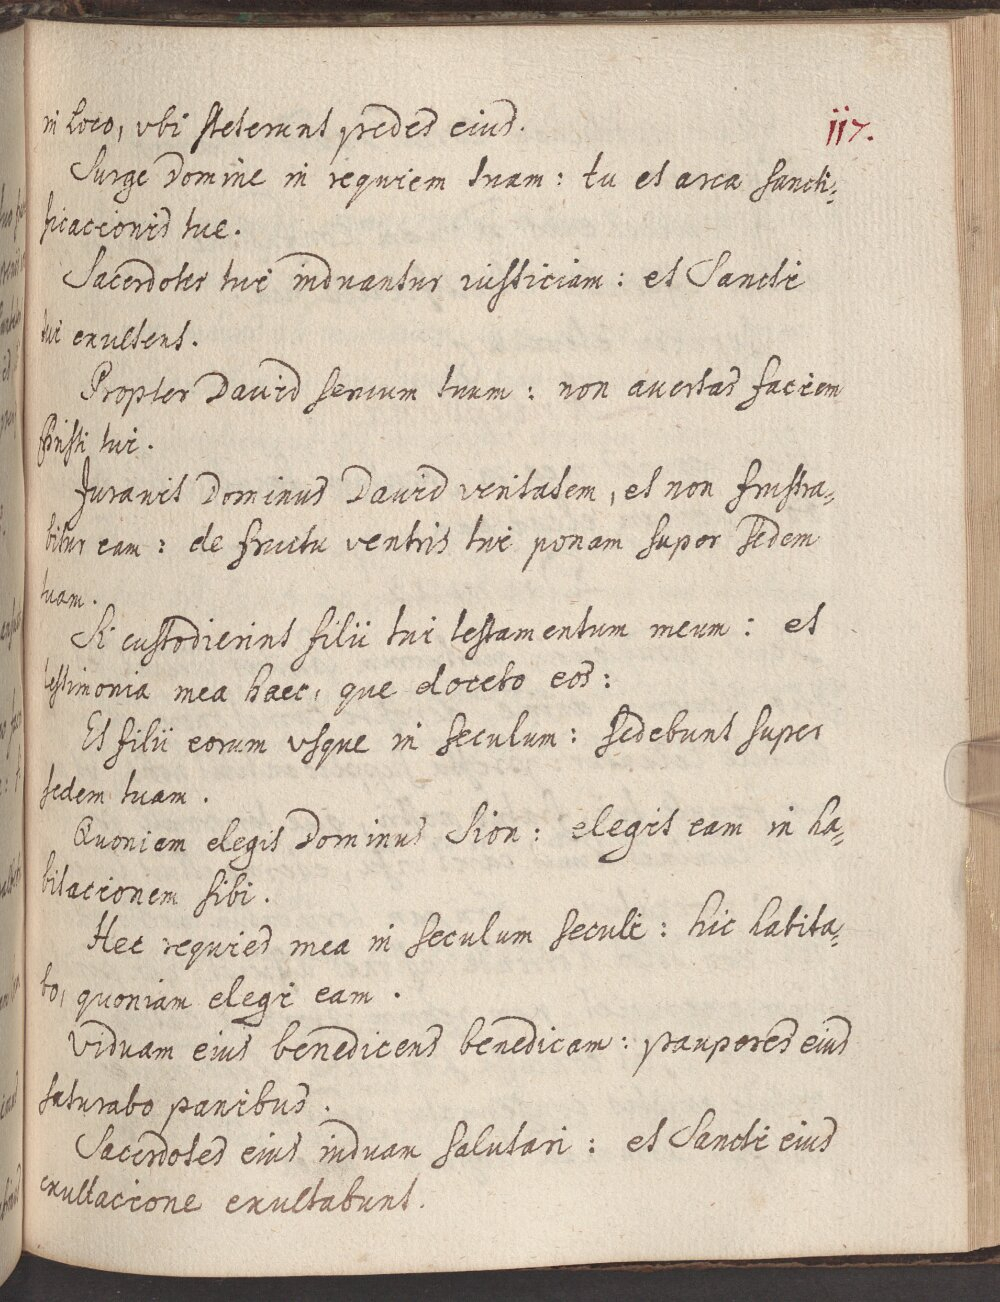 in loco, vbi steterunt pedes eius.
117.
Surge Domine in requiem tuam: tu et arca sancti-
ficacionis tue.
Sacerdotes tui induantur iusticiam: et Sancti
tui exultent.
Propter David servum tuum: non avertas faciem
Christi tui.
Juravit Dominus David veritatem, et non frustra-
bitur eam: de fructu ventris tui ponam super sedem
tuam.
Si custodierint filii tui testamentum meum: et
testimonia mea haec, que docebo eos:
Et filii eorum vsque in seculum: sedebunt super
sedem tuam.
Quoniam elegit Dominus Sion: elegit eam in ha-
bitacionem sibi.
Hec requies mea in seculum seculi: hic habita-
bo, quoniam elegi eam.
Viduam eius benedicens benedicam: pauperes eius
saturabo panibus.
Sacerdotes eius induam salutari: et Sancti eius
exultacione exultabunt.